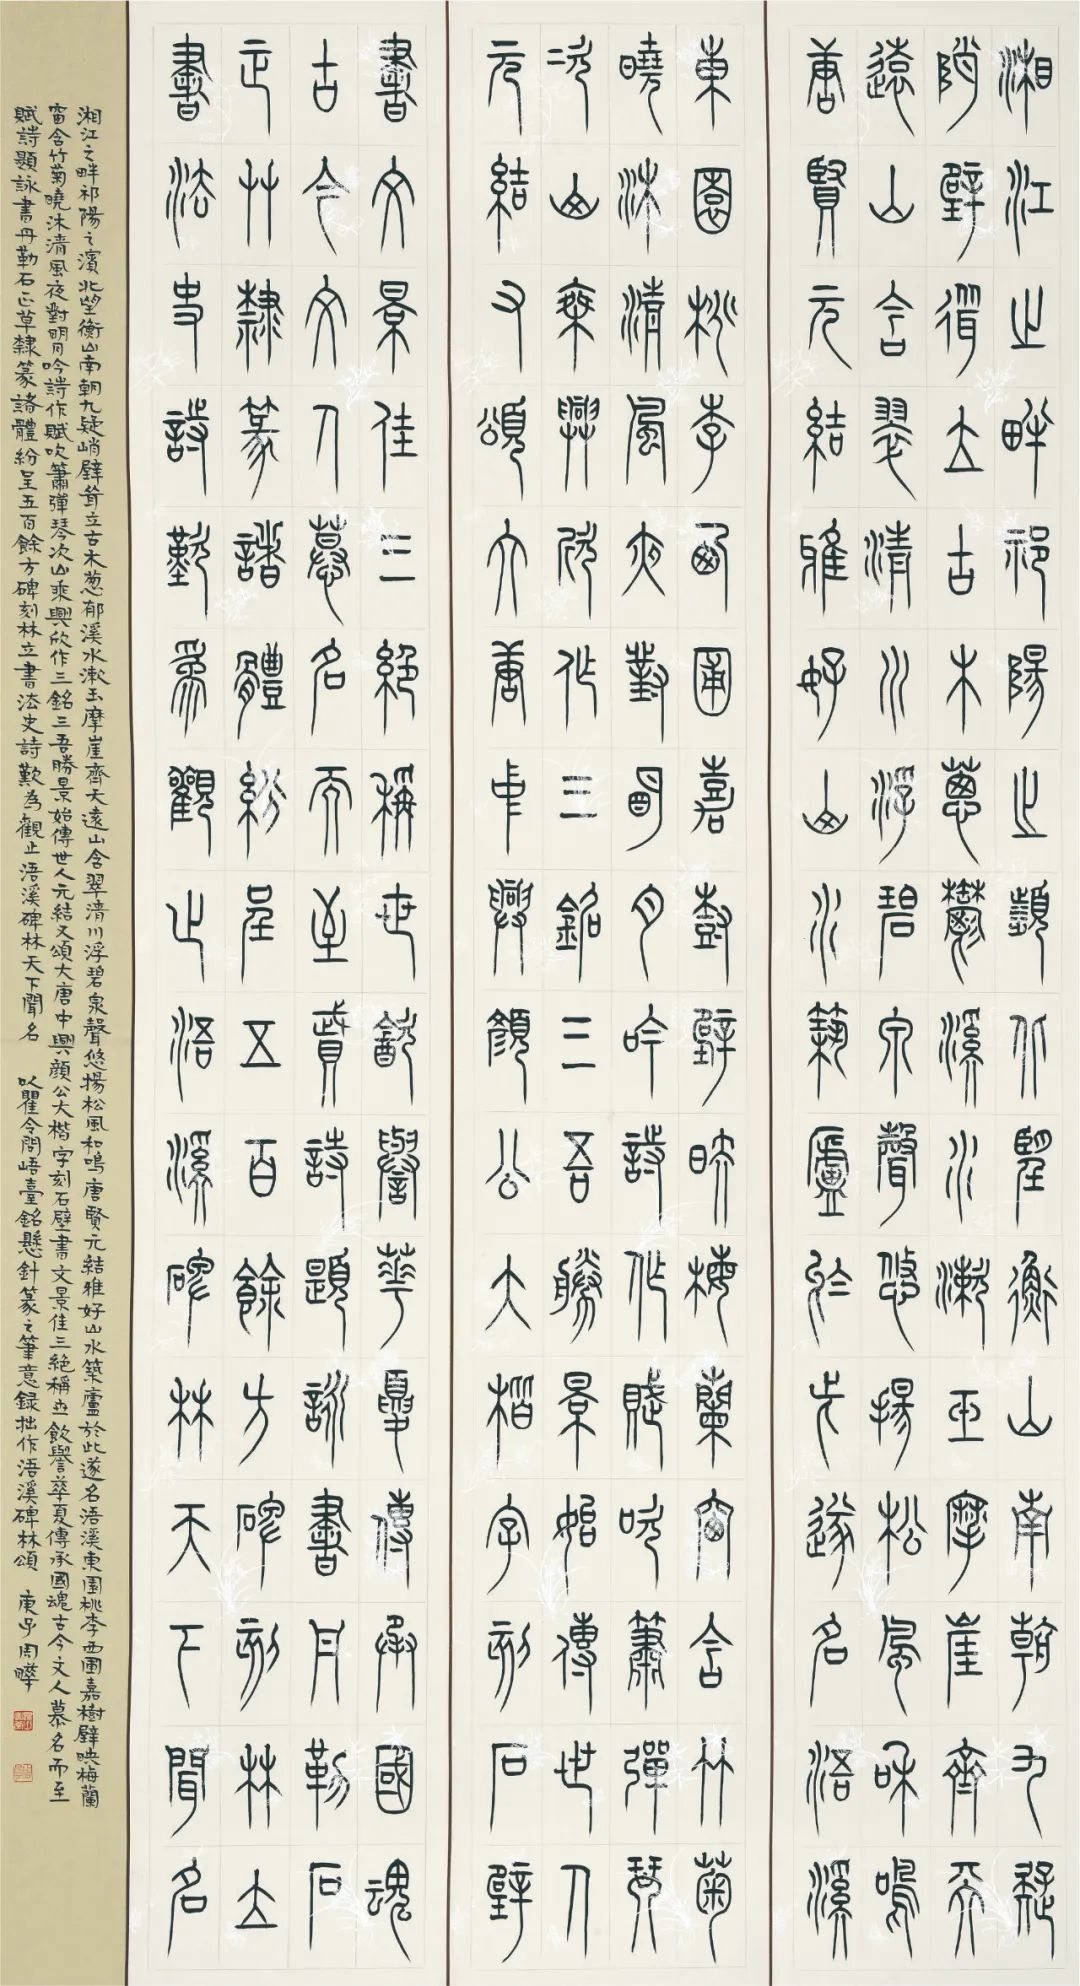 湘江之畔祁陽之濱北望衡山南朝九疑
陗壁聳立古木蔥鬱溪水漱玉摩崖齊天
遠山含翠清川浮碧泉聲悠揚松風和鳴
唐賢元結雅好山水築廬於此遂名浯溪
東園桃李西圃嘉樹壁映梅蘭窗含竹菊
曉沐清風夜對明月吟詩作賦吹簫彈琴
次山乘興欣作三銘三吾勝景始傳世人
元結又頌大唐中興顏公大楷字刻石壁
書文景佳三絕稱世飲譽華夏傳承國魂
古今文人慕名而至賦詩題詠書丹勒石
正草隸篆諸體紛呈五百餘方碑刻林立
書法史詩歎為觀止浯溪碑林天下聞名
湘江之畔祁陽之濱北望衡山南朝九疑峭壁耸立古木葱郁溪水漱玉摩崖齊天遠山含翠清川浮碧泉聲悠揚松風和鳴唐賢元結雅好山水築廬於此遂名浯溪東園桃李西圃嘉樹壁映梅蘭
窗含竹菊曉沐清風夜對明月吟詩作賦吹簫彈琴次山乘興欣作三銘三吾勝景始傳世人元結又頌大唐中興顏公大楷字刻石壁書文景佳三絕稱世飲譽華夏傳承國魂古今文人慕名而至
賦詩題詠書丹勒石正草隸篆諸體紛呈五百餘方碑刻林立書法史詩歎為觀止浯溪碑林天下聞名 以瞿令問峿臺銘懸針篆之筆意録拙作浯溪碑林頌 庚子周曄